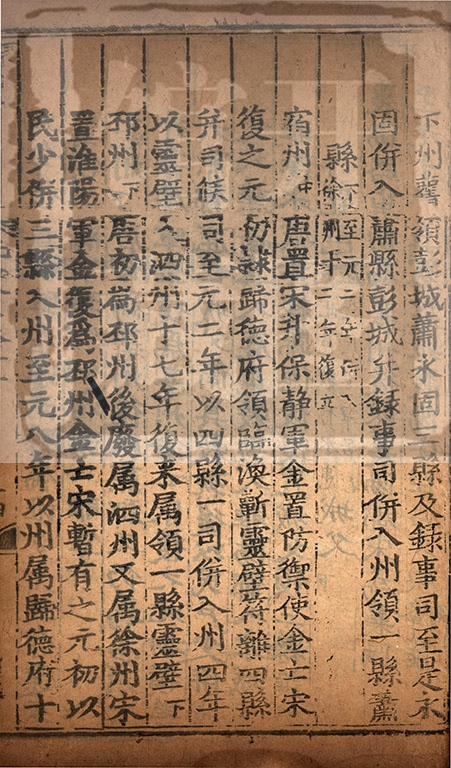 下州舊領彭城蕭永固三縣及錄事司至是永
固併入蕭縣彭城并錄事司併入州領一縣蕭
縣下至元二年併入徐州十二年復立
宿州中唐置宋升保静軍金置防禦使金亡宋
復之元初隸歸德府領臨渙蘄靈壁荷離四縣
并司候司至元二年以四縣一司併入州四年
以靈壁入泗州十七年復來属領一縣靈壁下
邳州下唐初爲邳州後廢属泗州又属徐州宋
置淮陽軍金復爲邳州金亡宋暫有之元初以
民少併三縣入州至元八年以州属歸德府十